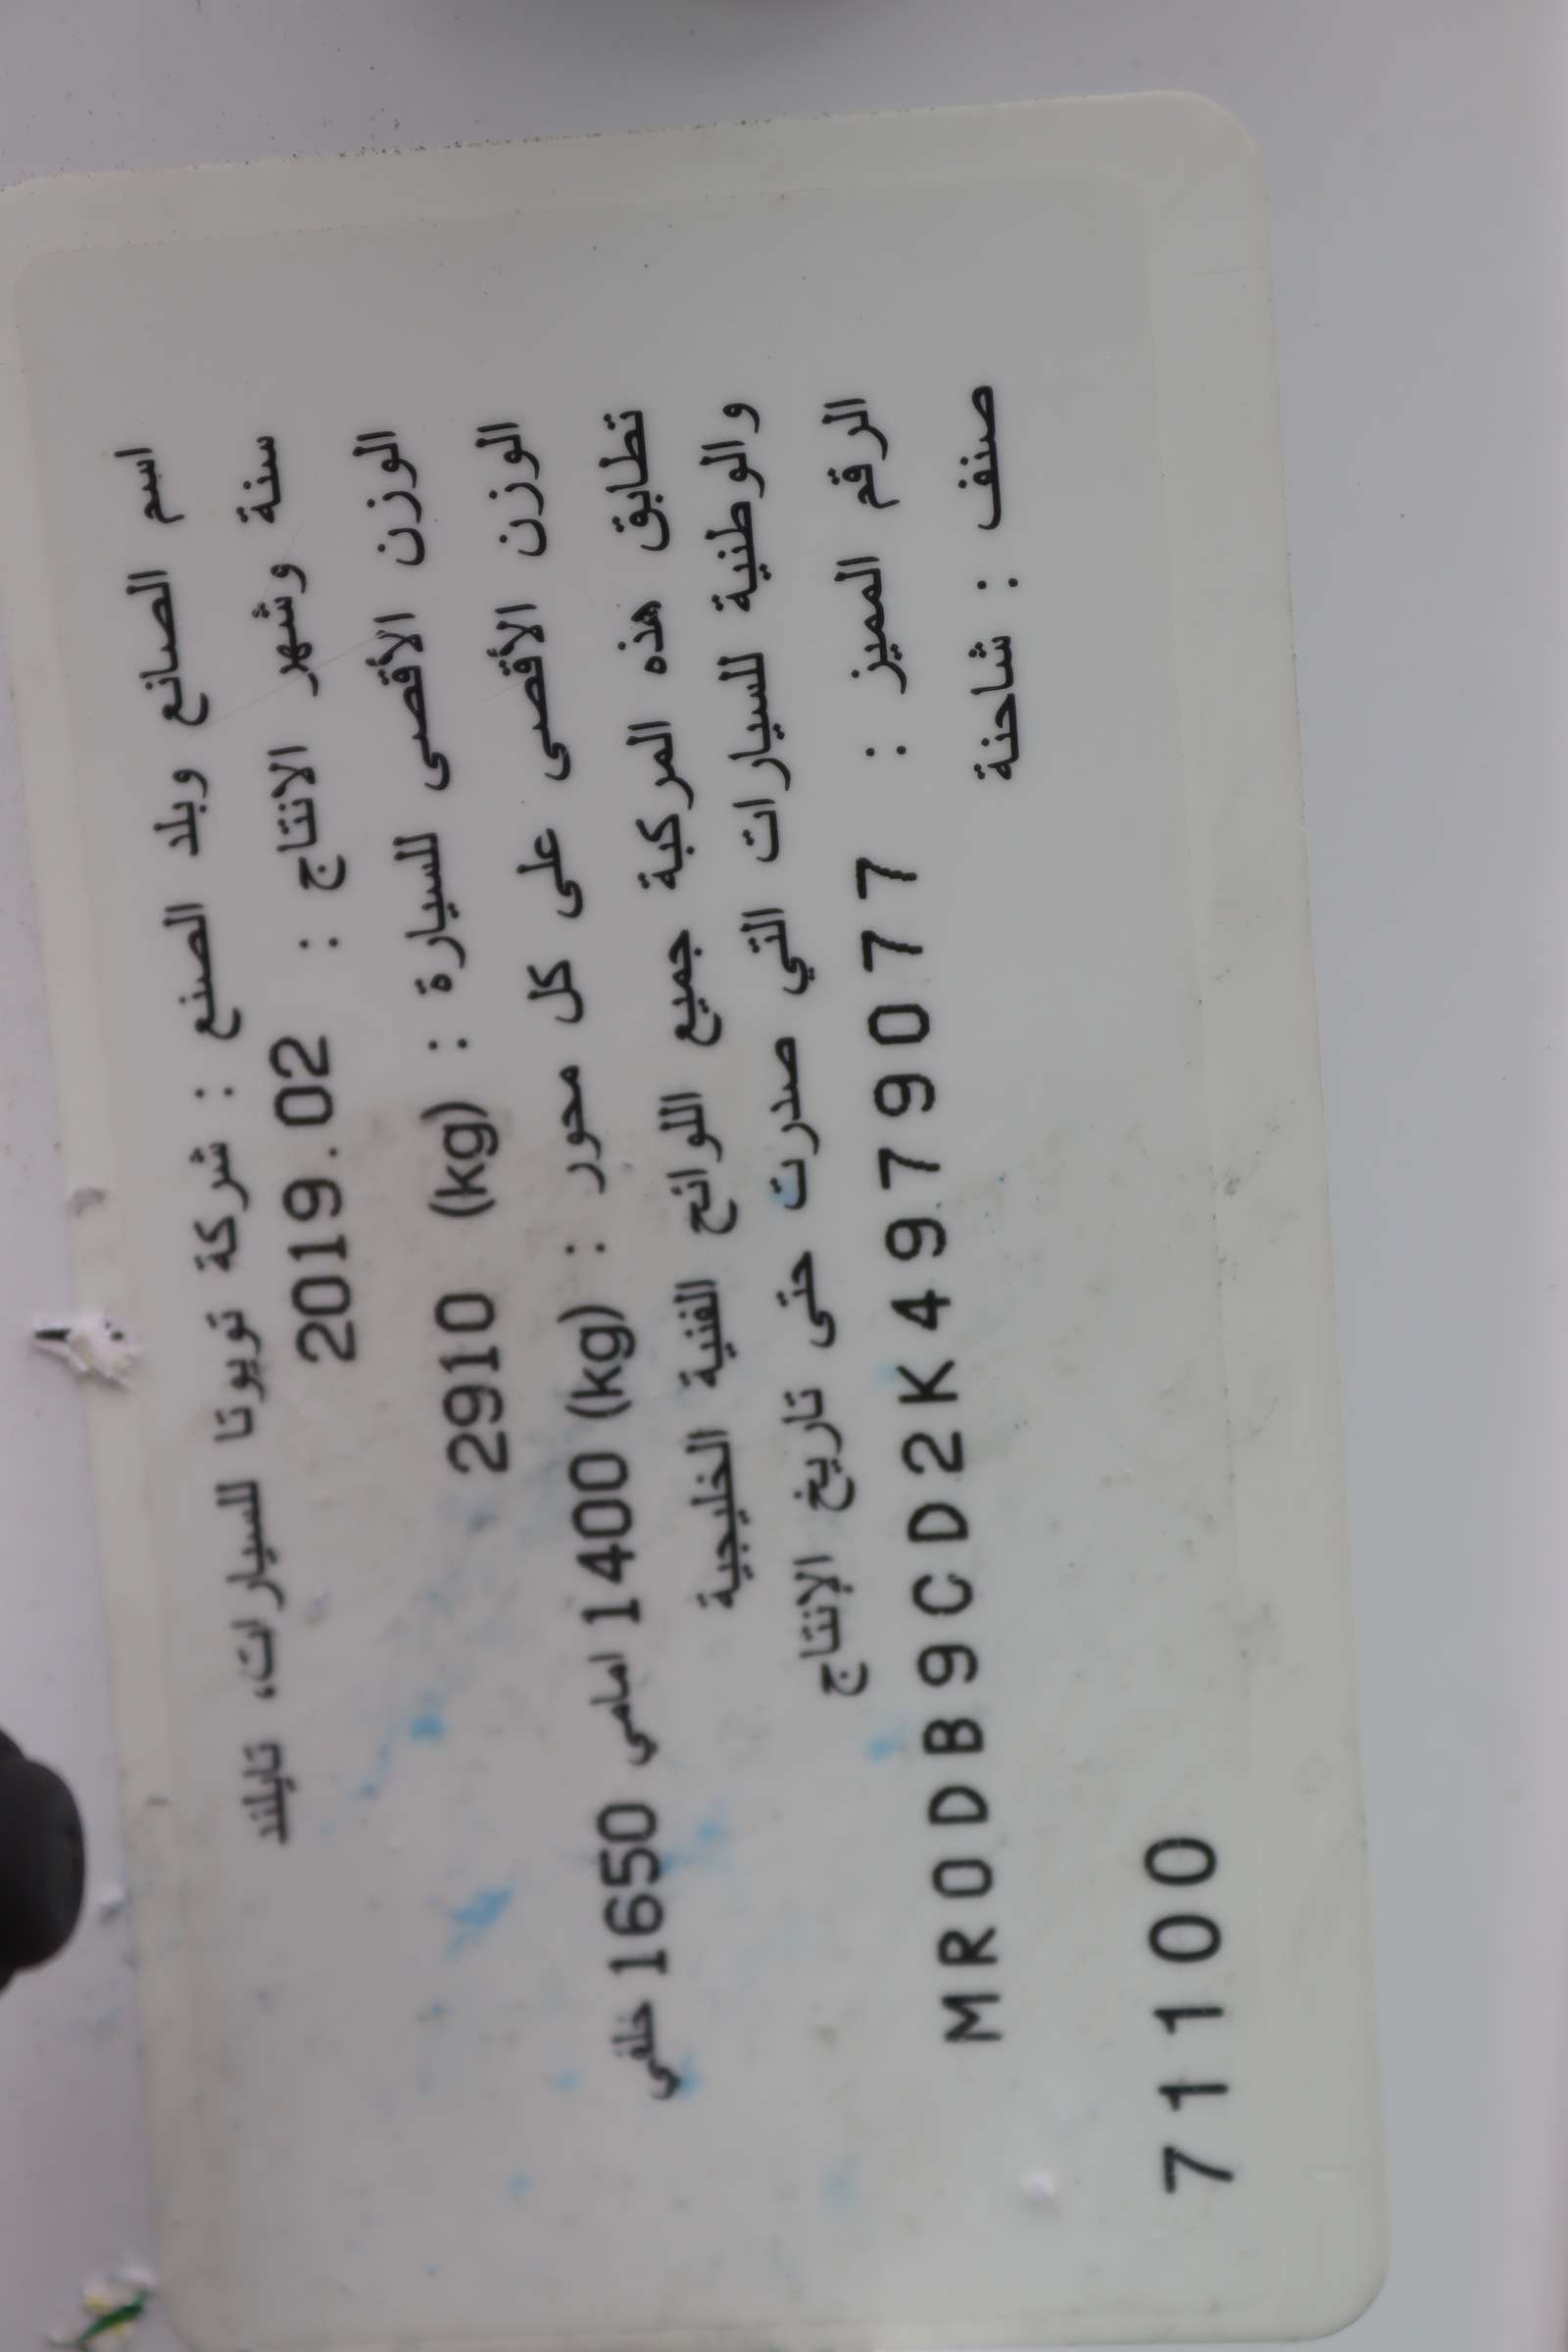 اسم الصانع وبلد الصنع : شركة تويوتا للسيارات، تايلند
سنة وشهر الانتاج : 2019.02
الوزن الأقصى للسيارة : (kg) 2910
الوزن الأقصى على كل محور : (kg) 1400 امامي 1650 خلفي
تطابق هذه المركبة جميع اللوائح الفنية الخليجية
والوطنية للسيارات التي صدرت حتى تاريخ الإنتاج
الرقم المميز : MR0DB9CD2K4979077
صنف : شاحنة
71100